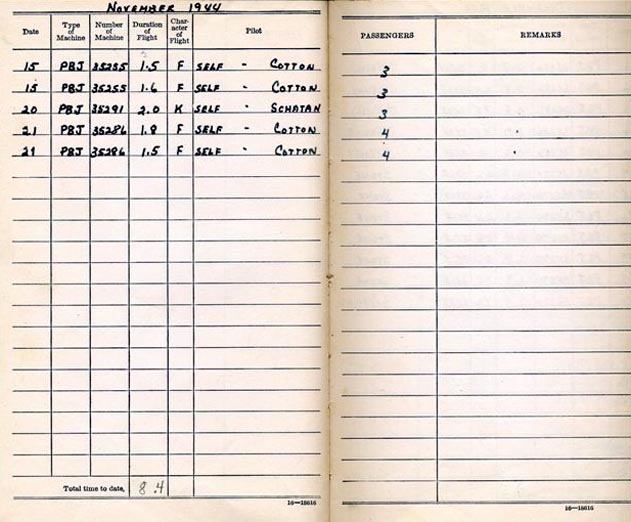 NOVEMBER 1944
Date Type of Machine Number of Machine Duration of Flight Char- acter of Flight Pilot PASSENGERS REMARKS
15 PBJ 35255 1.5 F SELF - COTTON 3
15 PBJ 35255 1.6 F SELF - COTTON 3
20 PBJ 35291 2.0 K SELF - SCHATAN 3
21 PBJ 35286 1.8 F SELF - COTTON 4
21 PBJ 35286 1.5 F SELF - COTTON 4
Total time to date, 8.4
16—18616 16—18616